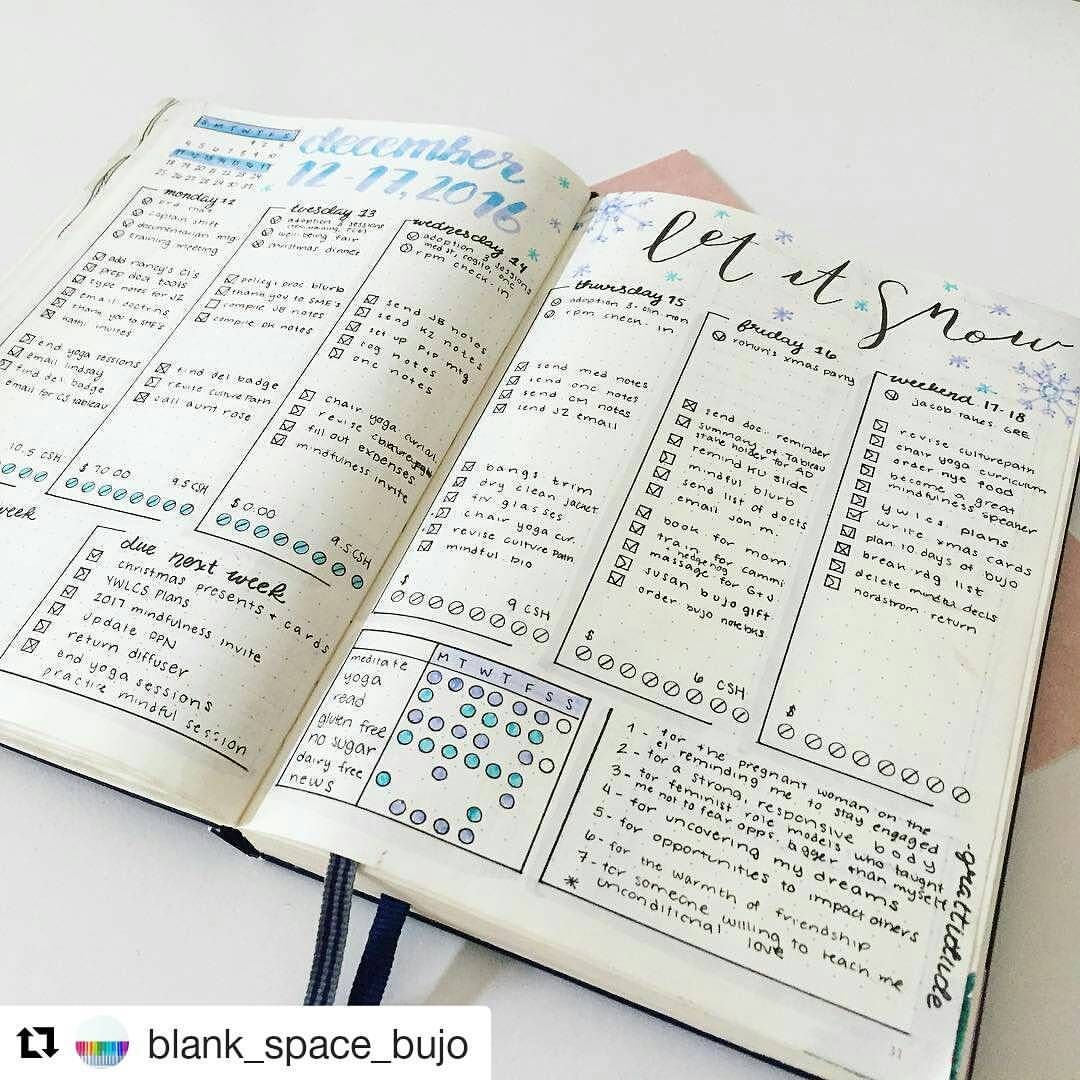 S M T W T F S
1 2 3
4 5 6 7 8 9 10
11 12 13 14 15 16 17
18 19 20 21 22 23 24
25 26 27 28 29 30 31
december
12-17, 2016
monday 12
captain shift
documentarian mtg
training meeting
add nancy's CI's
prep doct tools
type notes for JZ
email doctrns
thank you to SME's
kathi invites
send yoga sessions
email lindsay
find del badge
email for CS tableau
10.5 CSH
tuesday 13
adoption 2 sessions
well being fair
christmas dinner
policy & proc blurb
thank you to SME's
compile JB notes
compile DK notes
find del badge
revise culture path
call aunt rose
$ 70.00
9.5 CSH
wednesday 14
adoption 3 sessions
med st, cogito, onc
rpm check-in
send JB notes
send KZ notes
set up PIP mtg
cog notes
onc notes
chair yoga
revise culturepath
fill out expenses
mindfulness invite
$0.00
9.5 CSH
week
due next week
christmas presents & cards
YWLCS Plans
2017 mindfulness invite
update DPN
return diffuser
end yoga sessions
practice mindful session
let it snow
thursday 15
rpm check-in
send med notes
send onc notes
send CM notes
send JZ email
bangs trim
dry clean jacket
fix glasses
chair yoga cur.
revise culture path
mindful bio
$
9 CSH
friday 16
rohun's xmas party
send doc. reminder
summary of Tableau
stake holder for AD
remind KU slide
mindful blurb
send list of docts
email Jon m.
book for mom
train for cammi
hedgehog
massage for G+J
susan bujo gift
order bujo notebks.
$
6 CSH
weekend 17-18
jacob takes GRE
revise culturepath
chair yoga curriculum
order nye food
become a great
mindfulness speaker
ywlcs plans
write xmas cards
plan 10 days of bujo
break rdg list
delete mindful decls
nordstrom return
$
M T W T F S S
meditate
yoga
read
gluten free
no sugar
dairy free
news
1 - for the pregnant woman on the
el reminding me to stay engaged
2 - for a strong, responsive body
3 - for feminist role models who taught
me not to fear opps. bigger than myself
4 - for uncovering my dreams
5 - for opportunities to impact others
6 - for the warmth of friendship
7 - for someone willing to teach me
* unconditional love
-grattidude
blank_space_bujo